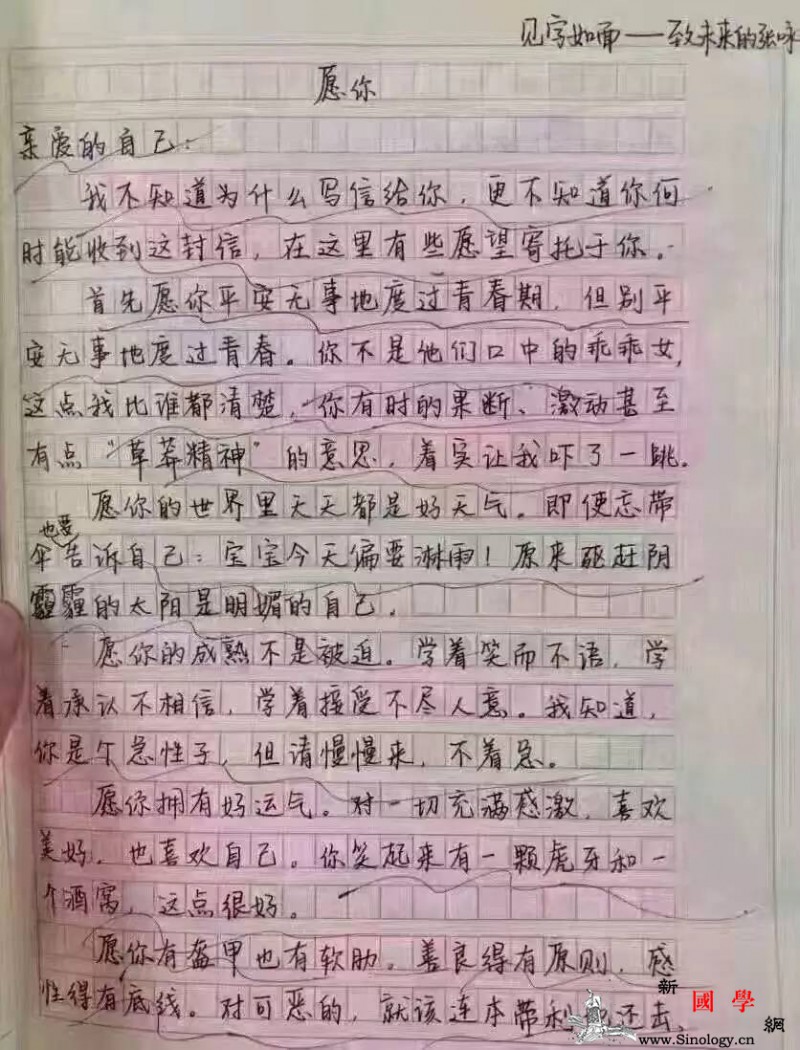 见字如面——致未来的张咏
愿你
亲爱的自己：
我不知道为什么写信给你，更不知道你何
时能收到这封信，在这里有些愿望寄托于你。
首先愿你平安无事地度过青春期，但别平
安无事地度过青春。你不是他们口中的乖乖女，
这点我比谁都清楚，你有时的果断、激动甚至
有点“草莽精神”的意思，着实让我吓了一跳。
愿你的世界里天天都是好天气。即便忘带
伞也要告诉自己：宝宝今天偏要淋雨！原来驱赶阴
霾的太阳是明媚的自己。
愿你的成熟不是被迫。学着笑而不语，学
着承认不相信，学着接受不尽人意。我知道，
你是个急性子，但请慢慢来，不着急。
愿你拥有好运气。对一切充满感激，喜欢
美好，也喜欢自己。你笑起来有一颗虎牙和一
个酒窝，这点很好。
愿你有盔甲也有软肋。善良得有原则，感
性得有底线。对可恶的，就该连本带利还去，
新國學網
www.Sinology.cn